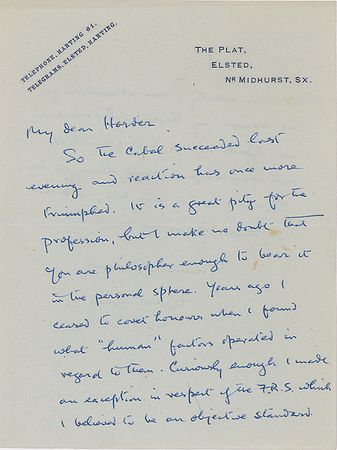 TELEPHONE, HARTING 61.
TELEGRAMS, ELSTED, HARTING.
THE PLAT,
ELSTED,
NR MIDHURST, SX.
My dear Harder.
So the Cabal succeeded last
evening and reaction has once more
triumphed. It is a great pity for the
profession, but I make no doubt that
you are philosopher enough to bear it
in the personal sphere. Years ago I
ceased to covet honours when I found
what "human" factors operated in
regard to them. Curiously enough I made
an exception in respect of the F.R.S. which
I believed to be an objective standard.